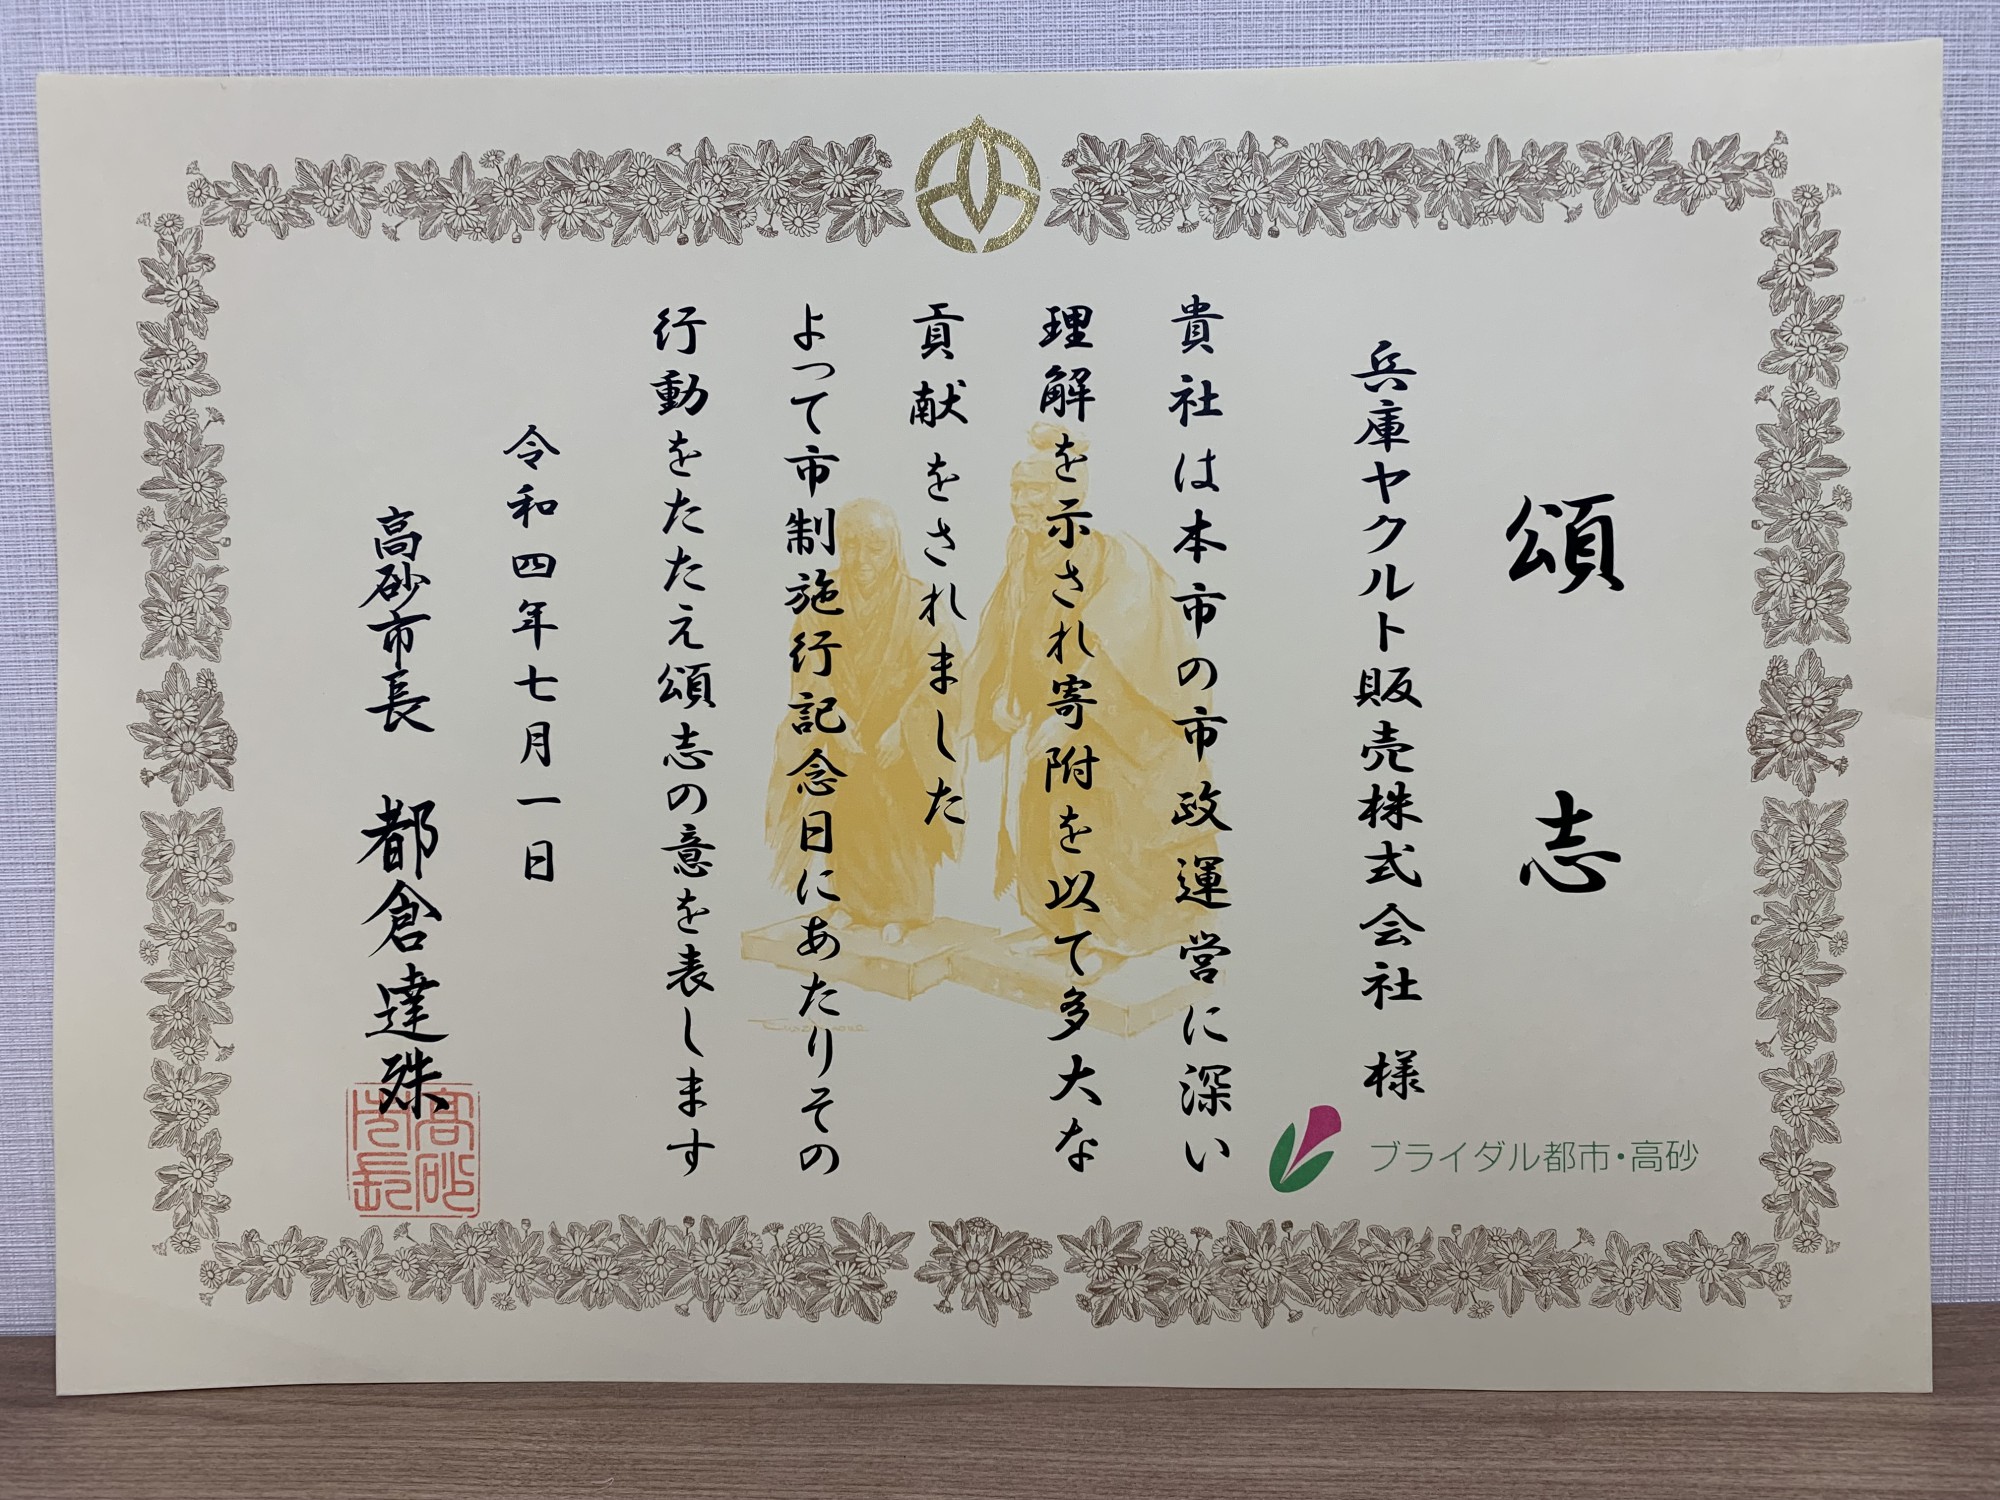 頌志
兵庫ヤクルト販売株式会社 様
貴社は本市の市政運営に深い
理解を示され寄附を以て多大な
貢献をされました
よって市制施行記念日にあたりその
行動をたたえ頌志の意を表します
令和四年七月一日
高砂市長 都倉達殊
高砂
市長
ブライダル都市・高砂